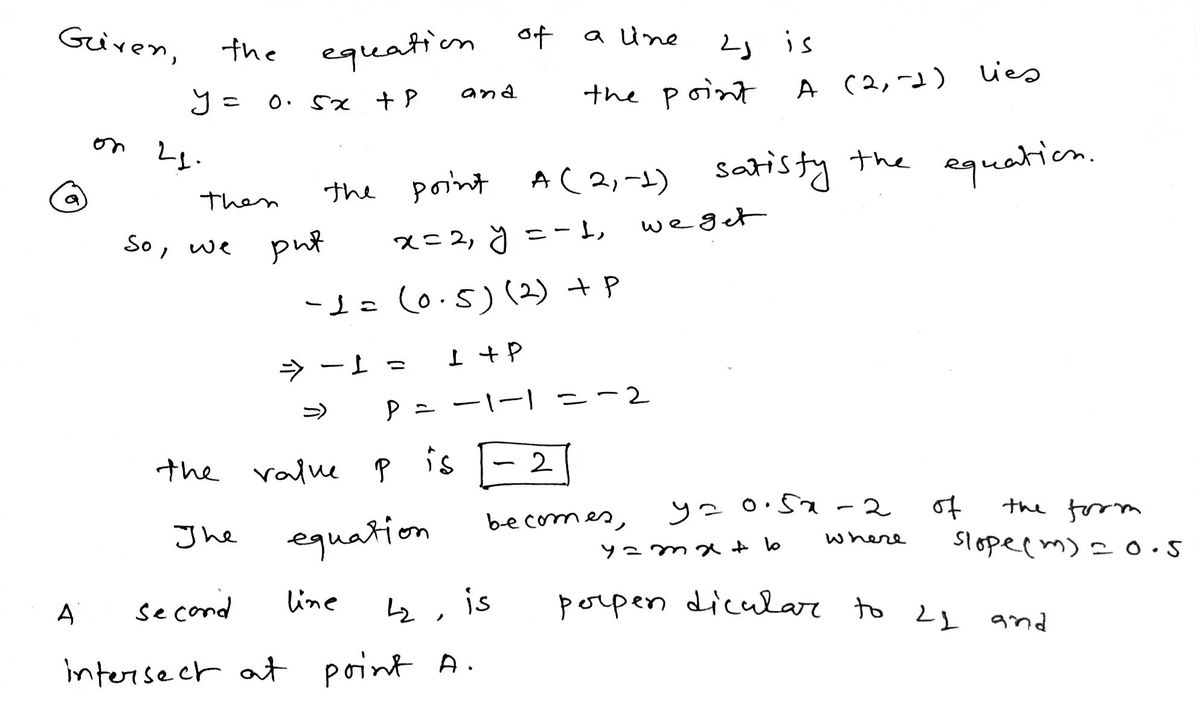 Given, the equation of a line L1 is
y = 0.5x + P and the point A (2,-1) lies
on L1.
(a) Then the point A(2,-1) satisfy the equation.
So, we put x=2, y=-1, we get
-1 = (0.5)(2) + P
⇒ -1 = 1 + P
⇒ P = -1-1 = -2
the value P is -2
The equation becomes, y = 0.5x - 2 of the form
y = mx + b where slope(m) = 0.5
A second line L2, is perpendicular to L1 and
intersect at point A.